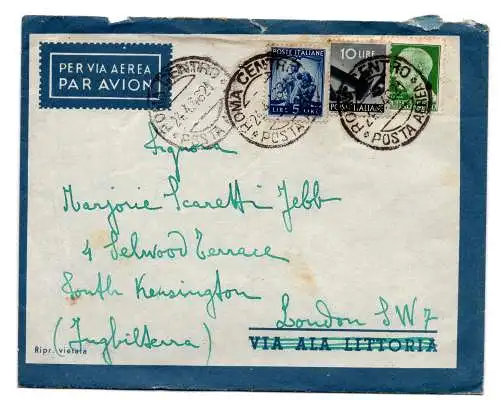 PER VIA AEREA
PAR AVION
ROMA CENTRO
POSTA
ROMA CENTRO
POSTA
POSTE ITALIANE
LIRE 5 LIRE
10 LIRE
POSTE ITALIANE
CENTRO
POSTA AEREA
Signora
Marjorie Scaretti Jebb
4 Selwood Terrace
South Kensington
London SW7
(Inghilterra)
VIA ALA LITTORIA
Ripr. vietata